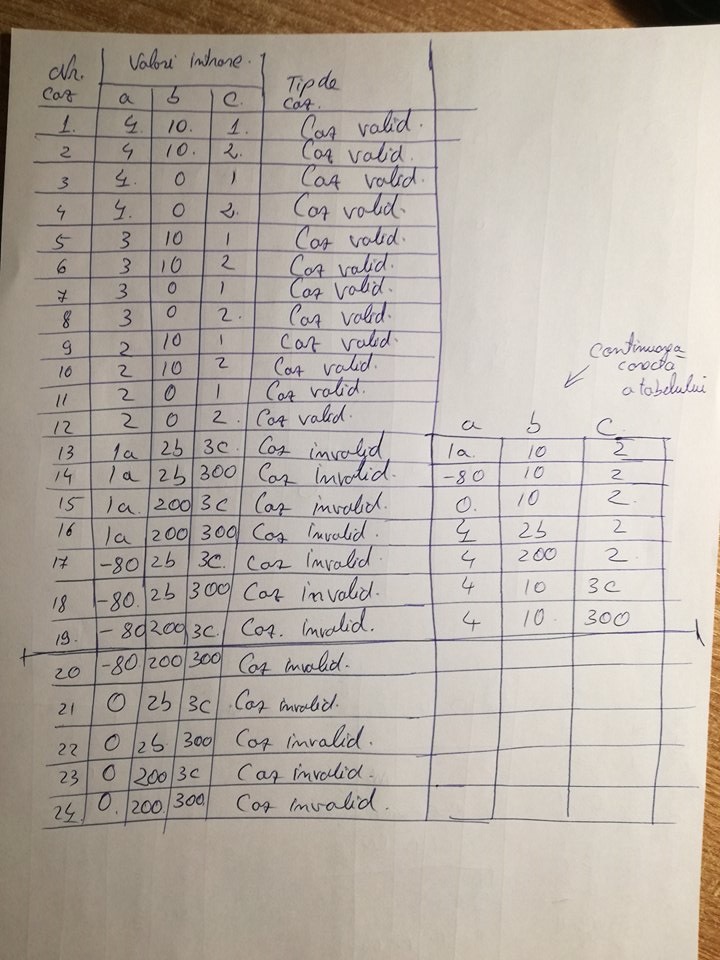 Nr. caz Valori intrare. Tip de caz.
a b c.
1. 4. 10. 1. Caz valid.
2 4 10. 2. Caz valid.
3 4. 0 1 Caz valid.
4 4. 0 2. Caz valid.
5 3 10 1 Caz valid.
6 3 10 2 Caz valid.
7 3 0 1 Caz valid.
8 3 0 2. Caz valid.
9 2 10 1 Caz valid.
10 2 10 2 Caz valid.
11 2 0 1 Caz valid.
12 2 0 2. Caz valid.
13 1a 2b 3c. Caz invalid
14 1a 2b 300 Caz invalid.
15 1a. 200 3c Caz invalid.
16 1a 200 300 Caz invalid.
17 -80 2b 3c. Caz invalid.
18 -80. 2b 300 Caz invalid.
19. -80 200 3c. Caz. invalid.
20 -80 200 300 Caz invalid.
21 0 2b 3c Caz invalid.
22 0 2b 300 Caz invalid.
23 0 200 3c Caz invalid.
24. 0. 200 300 Caz invalid.
Continuarea
corectă
a tabelului
a b c.
1a. 10 2
-80 10 2
0. 10 2.
4 2b 2
4 200 2.
4 10 3c
4 10. 300